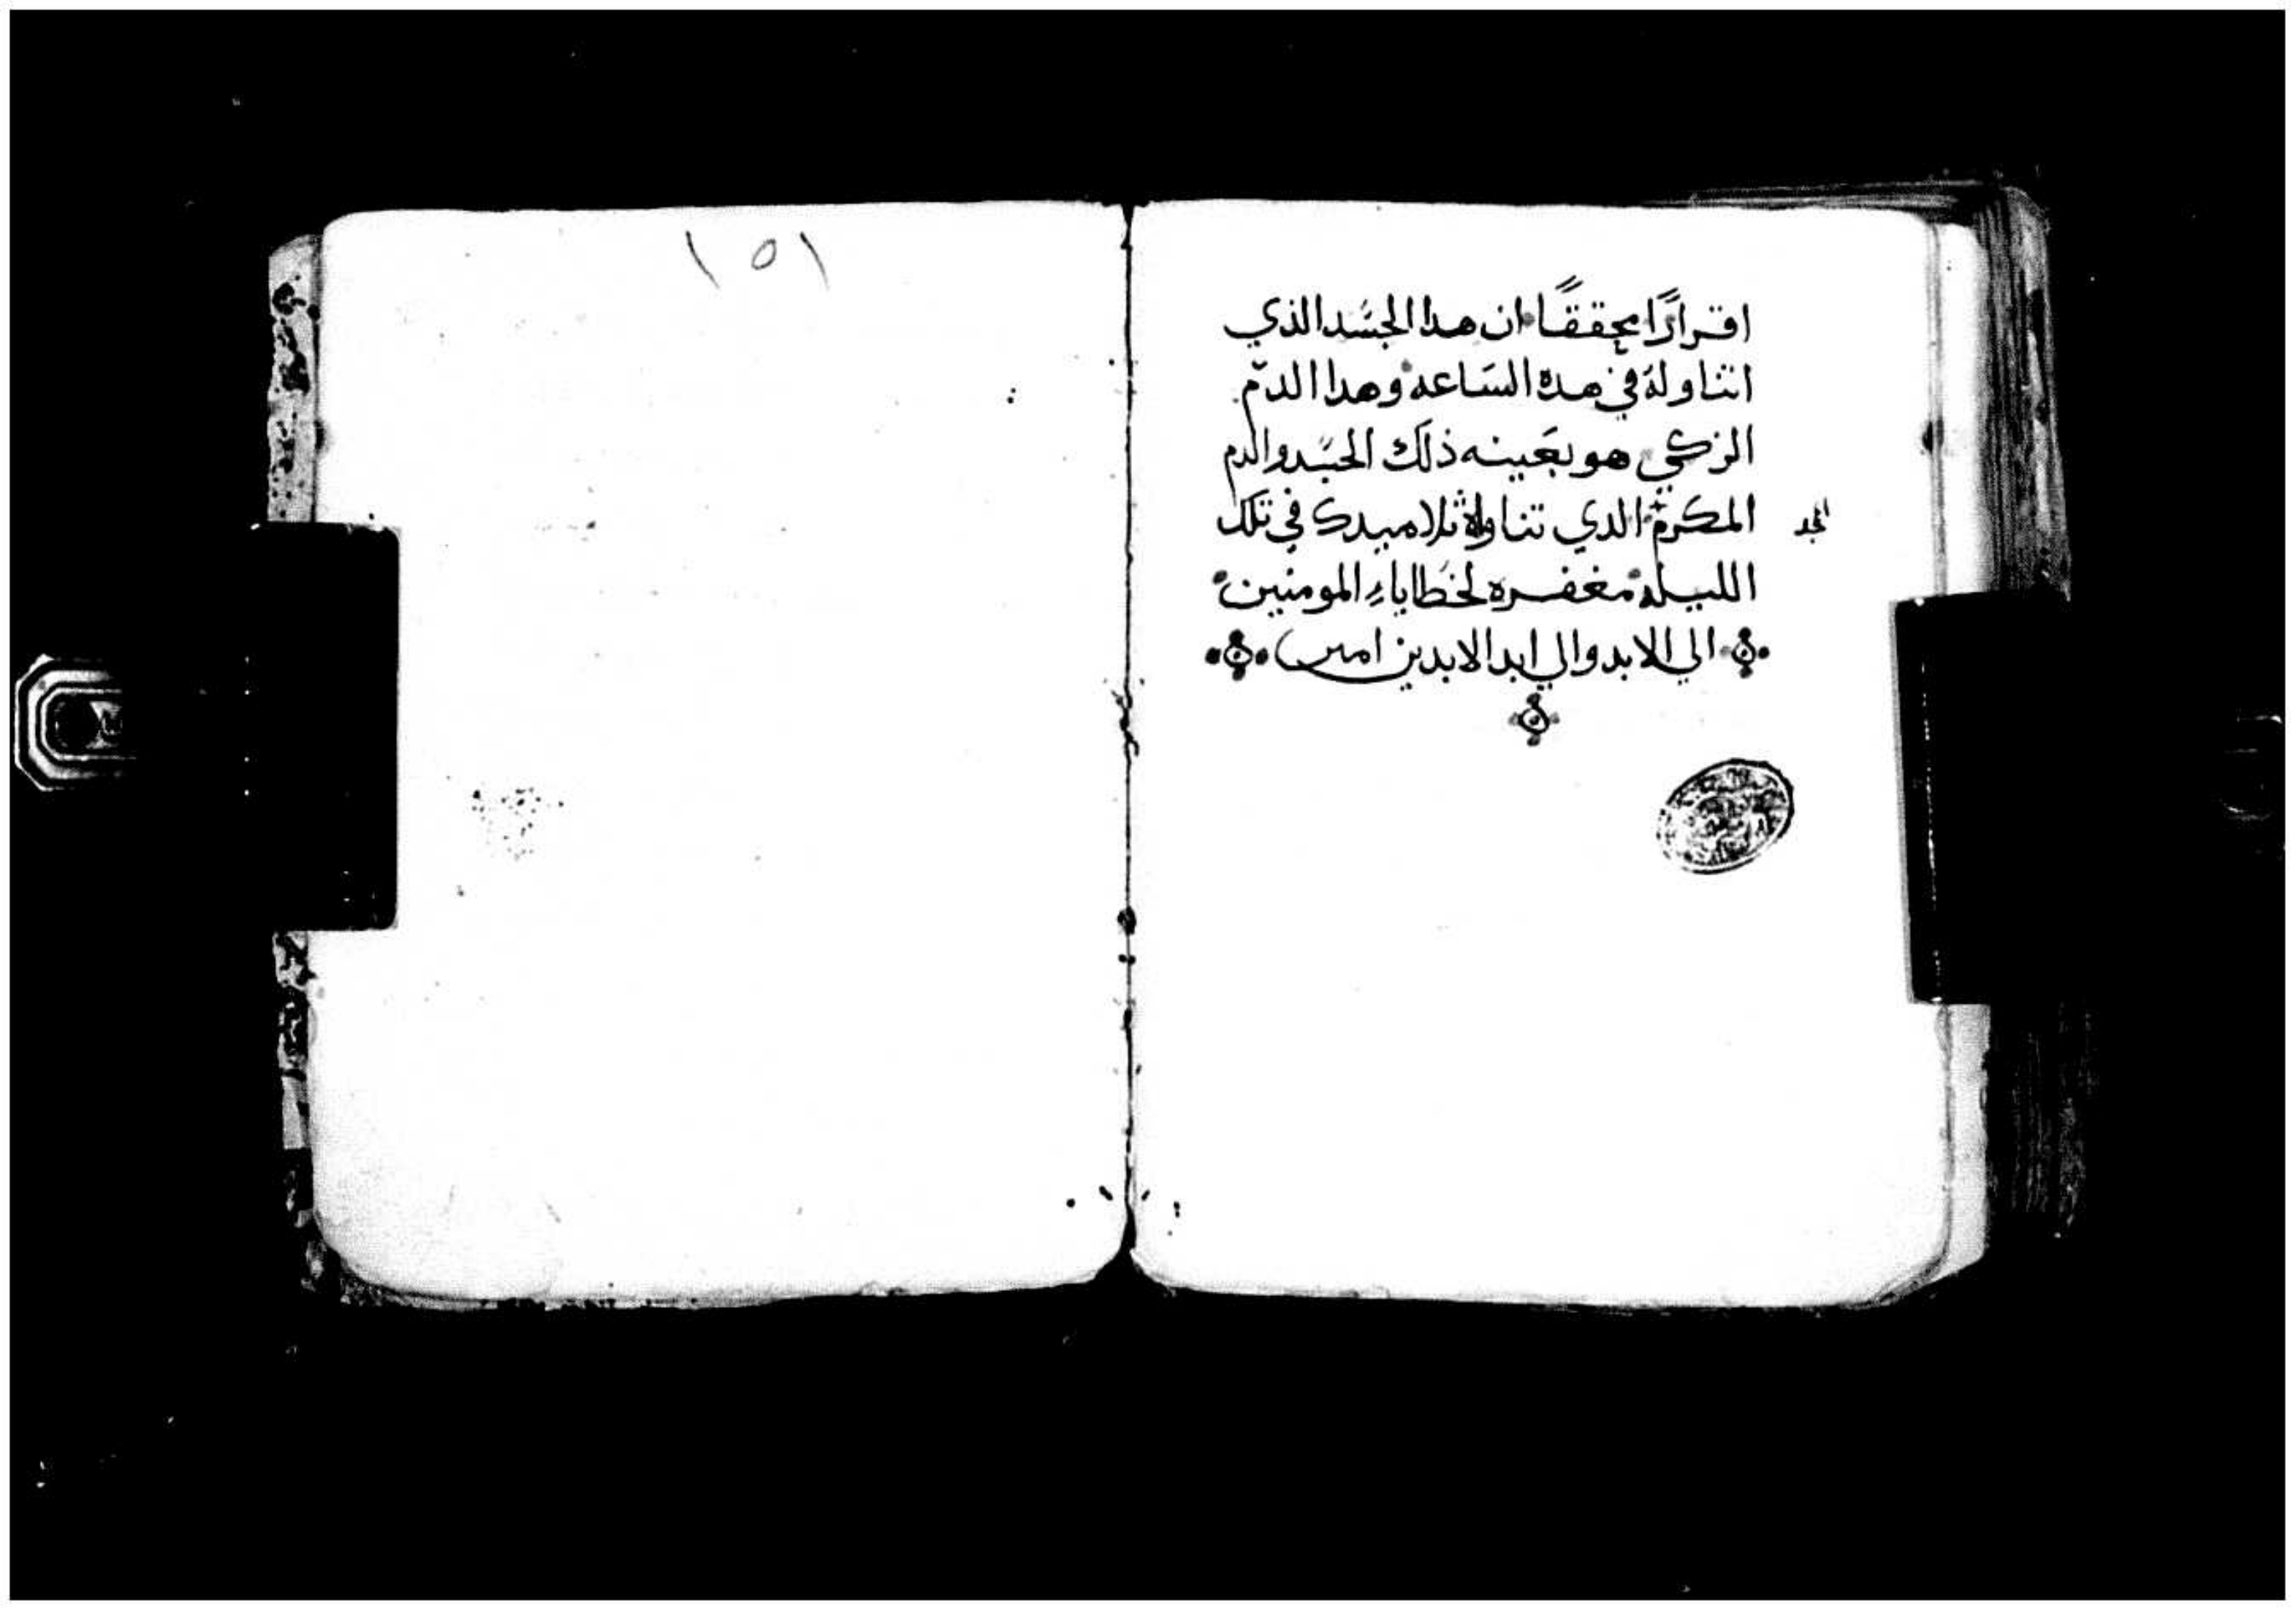 اقرارًا محققًا ان هدا الجسَد الذي
اتناولهُ في هده السَاعه وهدا الدم
الزكي هو بعَينه ذلك الجسَد والدم
المكرم الدي تناولهُ تلاميدك في تلك
الليله مغفره لخطاياءِ المومنين
الي الابد والي ابد الابدين امين
١٥١